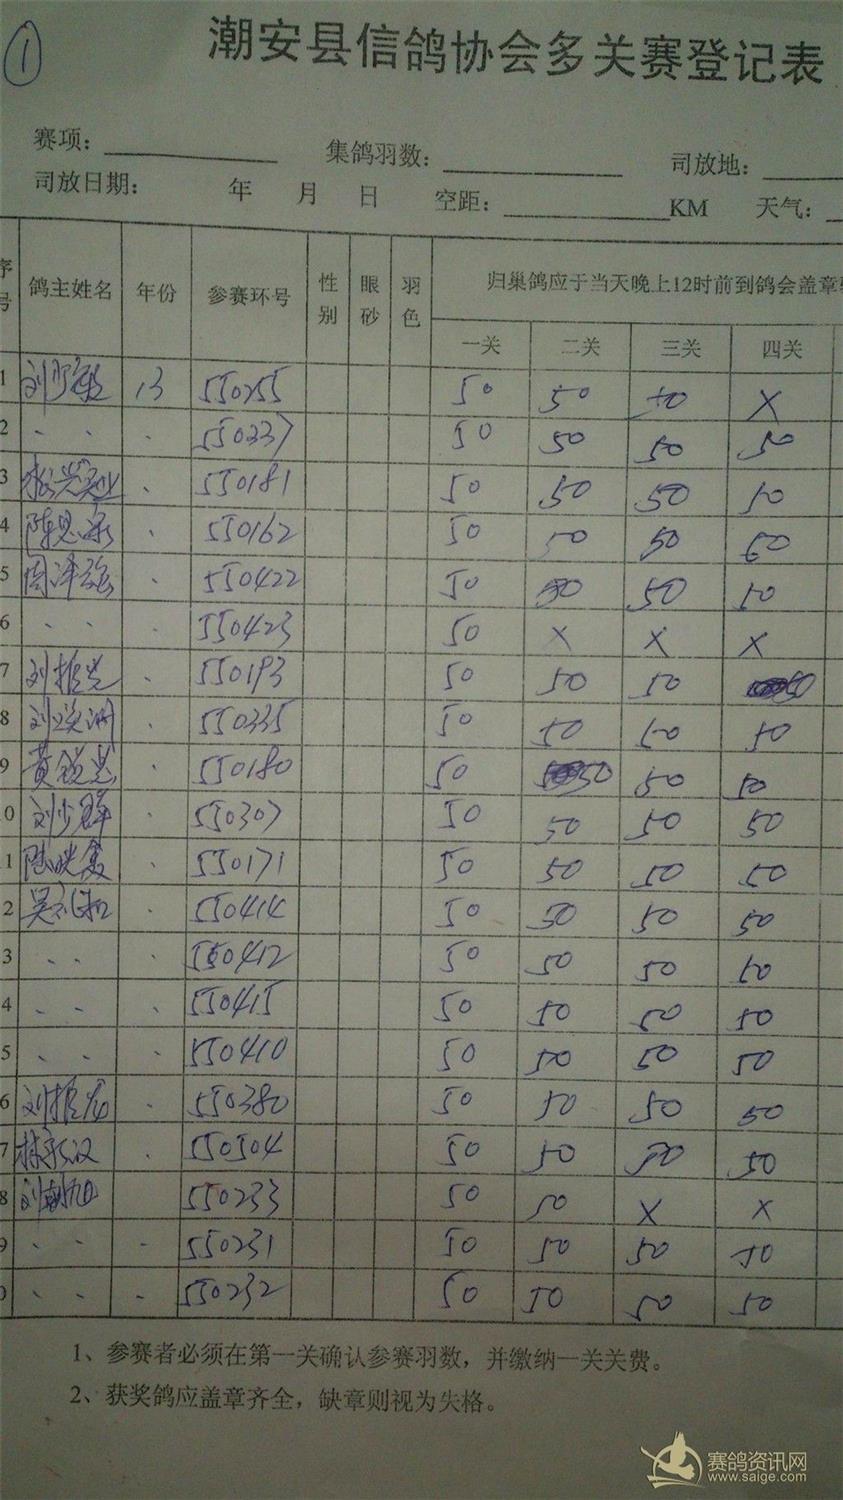 ①
潮安县信鸽协会多关赛登记表
赛项: 集鸽羽数: 司放地:
司放日期: 年 月 日 空距: KM 天气:
序号 鸽主姓名 年份 参赛环号 性别 眼砂 羽色 归巢鸽应于当天晚上12时前到鸽会盖章
一关 二关 三关 四关
1 刘 13 550255 50 50 50 X
2 、 、 、 550237 50 50 50 50
3 振兴实业 、 550181 50 50 50 50
4 陈思 、 550162 50 50 50 60
5 周泽 、 550422 50 50 50 50
6 、 、 、 550423 50 X X X
7 刘振光 、 550193 50 50 50 50
8 刘 、 550335 50 50 50 50
9 黄锐忠 、 550180 50 50 50 50
0 刘少群 、 550307 50 50 50 50
1 陈映 、 550171 50 50 50 50
2 吴礼和 、 550414 50 50 50 50
3 、 、 、 550412 50 50 50 50
4 、 、 、 550415 50 50 50 50
5 、 、 、 550410 50 50 50 50
6 刘振龙 、 550380 50 50 50 50
7 林 汉 、 550504 50 50 50 50
8 刘朝旭 550233 50 50 X X
9 、 、 、 550231 50 50 50 50
0 、 、 、 550232 50 50 50 50
1、参赛者必须在第一关确认参赛羽数，并缴纳一关关费。
2、获奖鸽应盖章齐全，缺章则视为失格。
赛鸽资讯网
www.saige.com